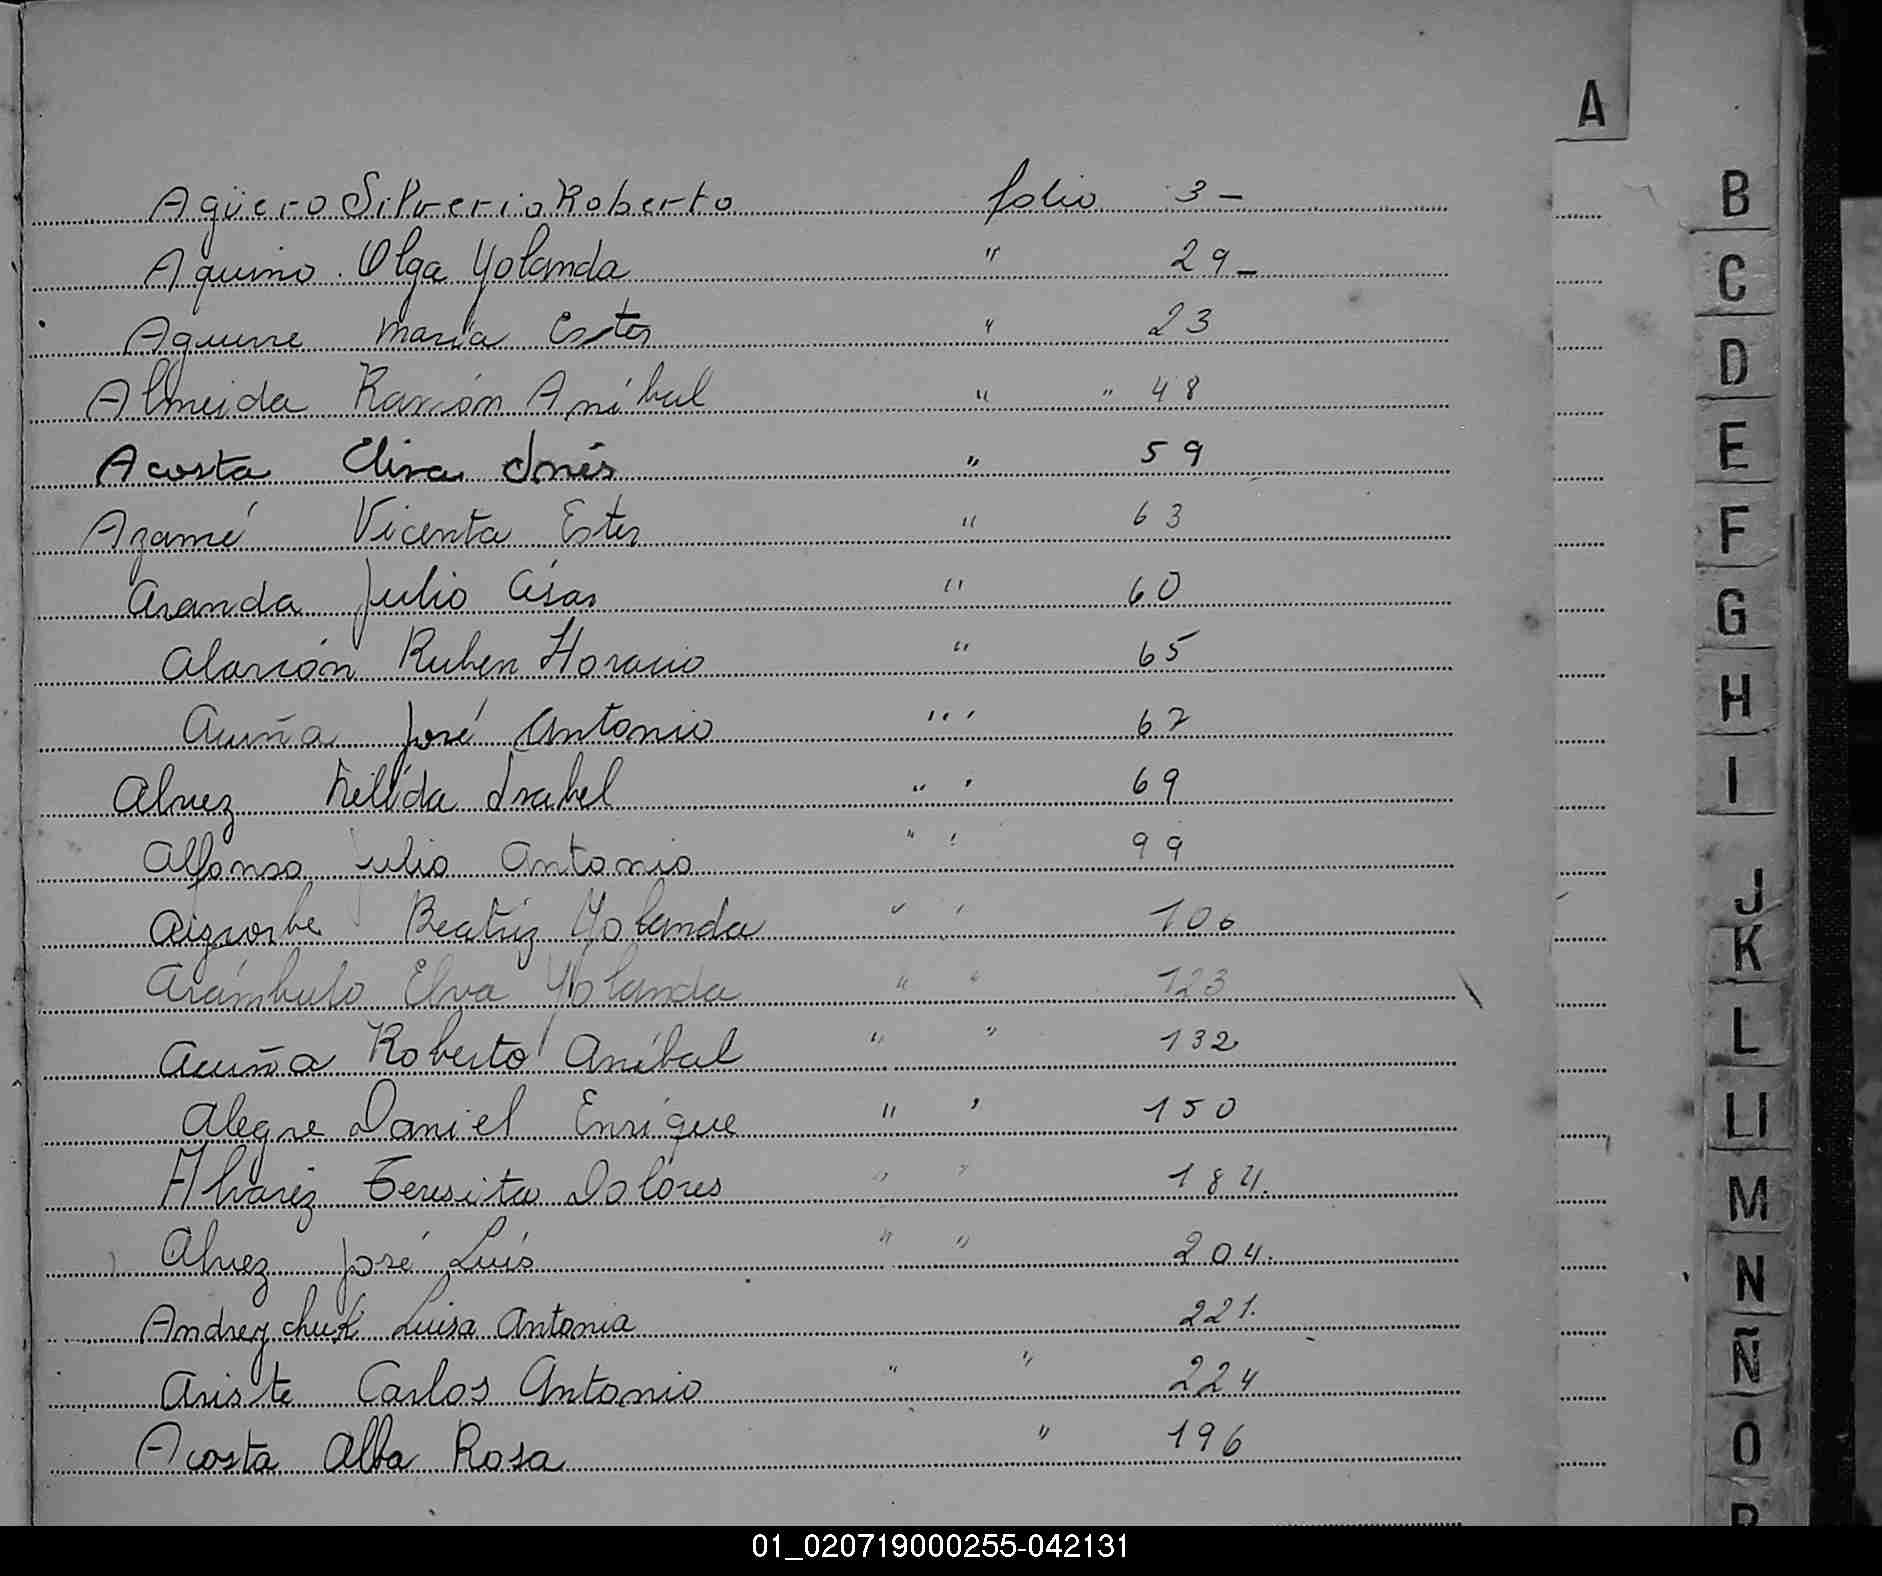 A
Agüero Silverio Roberto folio 3-
Aquino. Olga Yolanda " 29-
Aguirre Maria Ester " 23
Almeida Ramón Aníbal " " 48
Acosta Elira Inés " 59
Azamé Vicenta Ester " 63
Aranda Julio César " 60
Alarcón Ruben Horacio " 65
Acuña José Antonio " ' 67
Alvez Nélida Isabel " ' 69
Alfonso Julio Antonio " ' 99
Aizcorbe Beatriz Yolanda " ' 106
Arámbulo Elva Yolanda " " 123
Acuña Roberto Aníbal " " 132
Alegre Daniel Enrique " ' 150
Alvarez Teresita Dolores " " 184.
Alvez José Luís " " 204.
Andreychuk Luisa Antonia 221.
Ariste Carlos Antonio " " 224
Acosta Alba Rosa " 196
B
C
D
E
F
G
H
I
J
K
L
Ll
M
N
Ñ
O
P
01_020719000255-042131